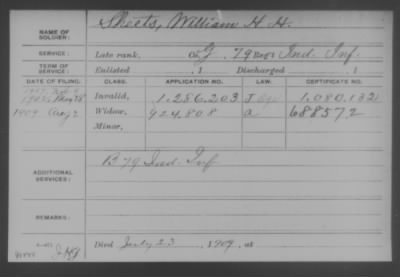 NAME OF SOLDIER: Sheets, William H. H.
SERVICE: Late rank, Co. G, 79 Reg't Ind. Inf.
TERM OF SERVICE: Enlisted , 1 Discharged , 1
DATE OF FILING. CLASS. APPLICATION NO. LAW. CERTIFICATE NO.
Invalid, 1.286.203 1.080.132
1909 Aug 2 Widow, 924.808 a 688572
Minor,
ADDITIONAL SERVICES: B 79 Ind. Inf
REMARKS:
Died July 23, 1909, at